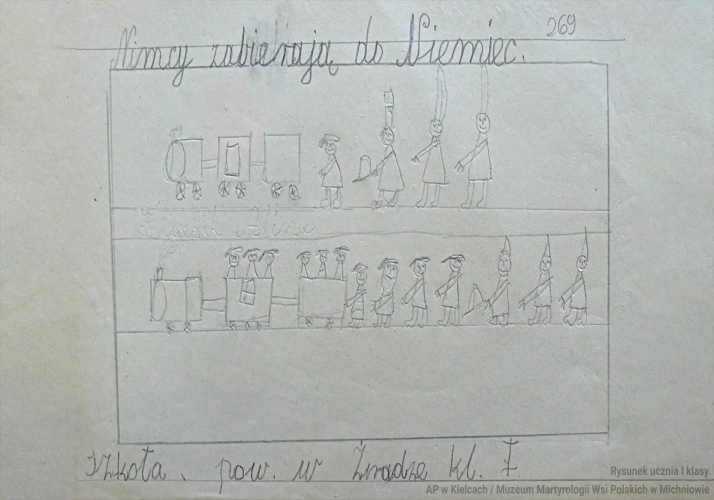 Nimcy zabierają do Niemiec. 269
szkoła. pow. w
kl. I.
Rysunek ucznia I klasy.
AP w Kielcach / Muzeum Martyrologii Wsi Polskich w Michniowie